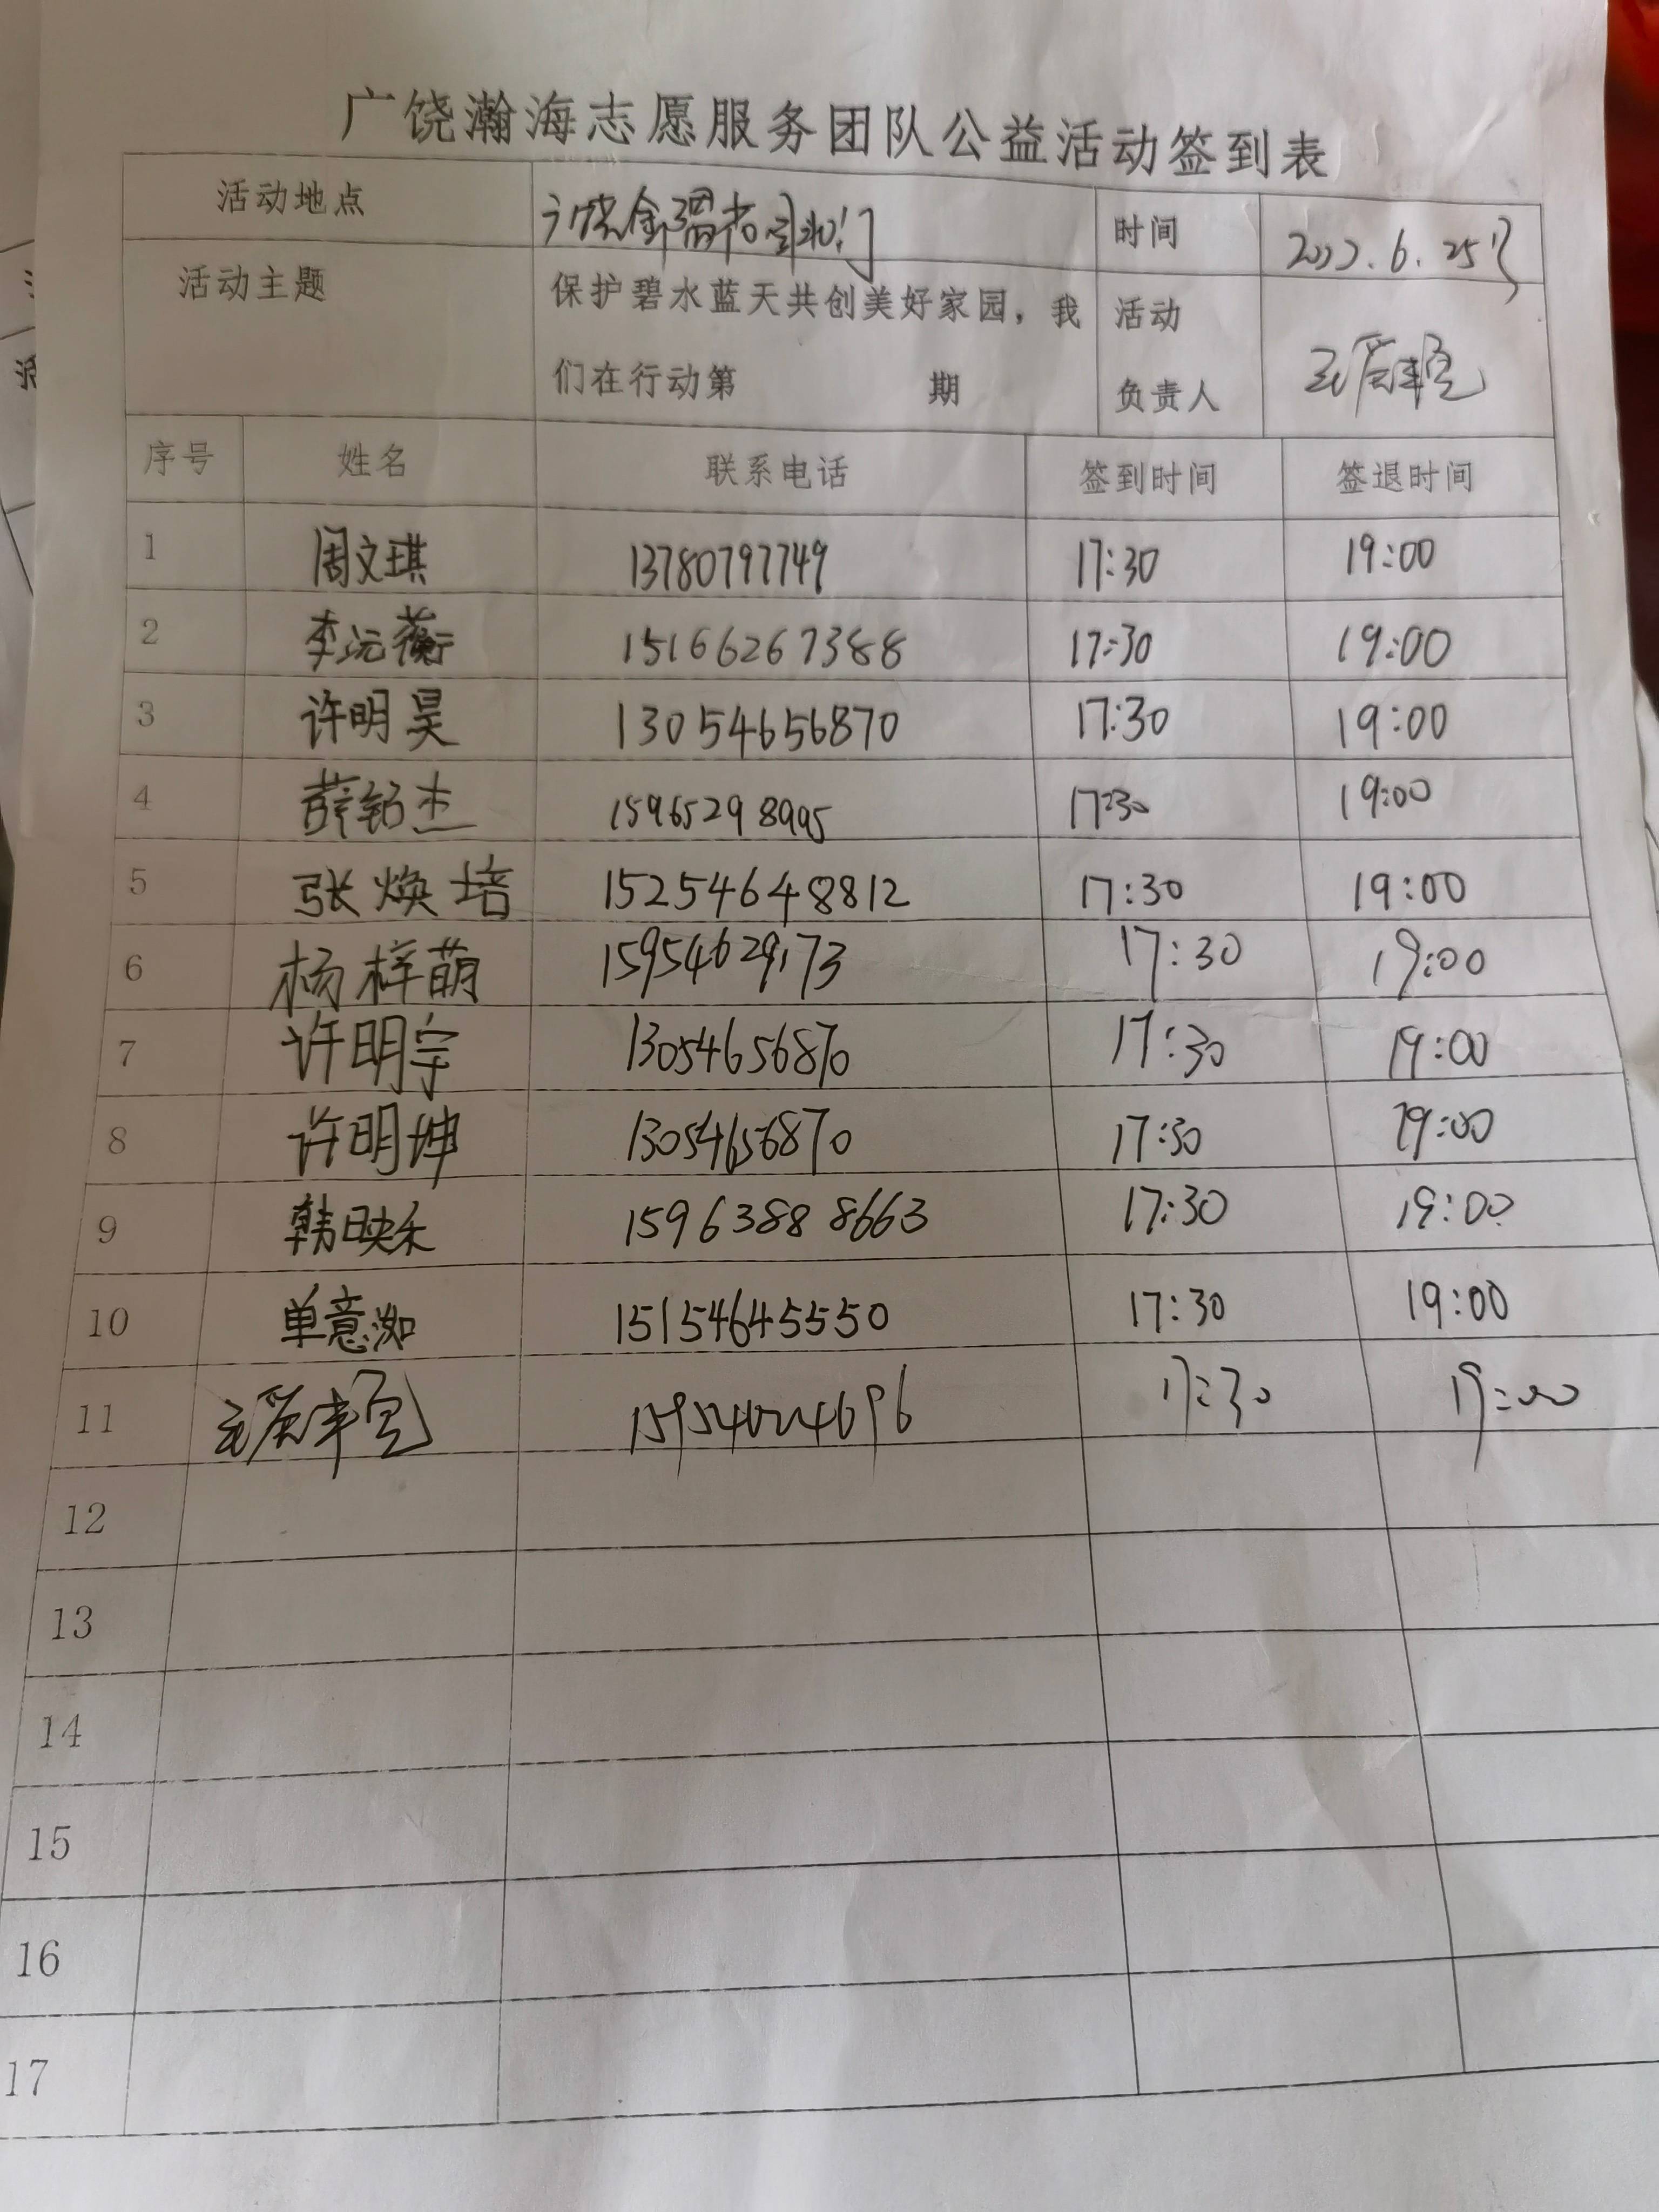 广饶瀚海志愿服务团队公益活动签到表
活动地点 时间 2022.6.25
活动主题 保护碧水蓝天共创美好家园，我 活动
们在行动第 期 负责人
序号 姓名 联系电话 签到时间 签退时间
1 周文琪 13780797749 17:30 19:00
2 李沅蘅 15166267388 17:30 19:00
3 许明昊 13054656870 17:30 19:00
4 薛铭杰 15965298995 17:30 19:00
5 张焕培 15254648812 17:30 19:00
6 杨梓萌 15954629173 17:30 19:00
7 许明宇 13054656870 17:30 19:00
8 许明坤 13054656870 17:30 19:00
9 韩映禾 15963888663 17:30 19:00
10 单意洳 15154645550 17:30 19:00
11 17:30 19:00
12
13
14
15
16
17